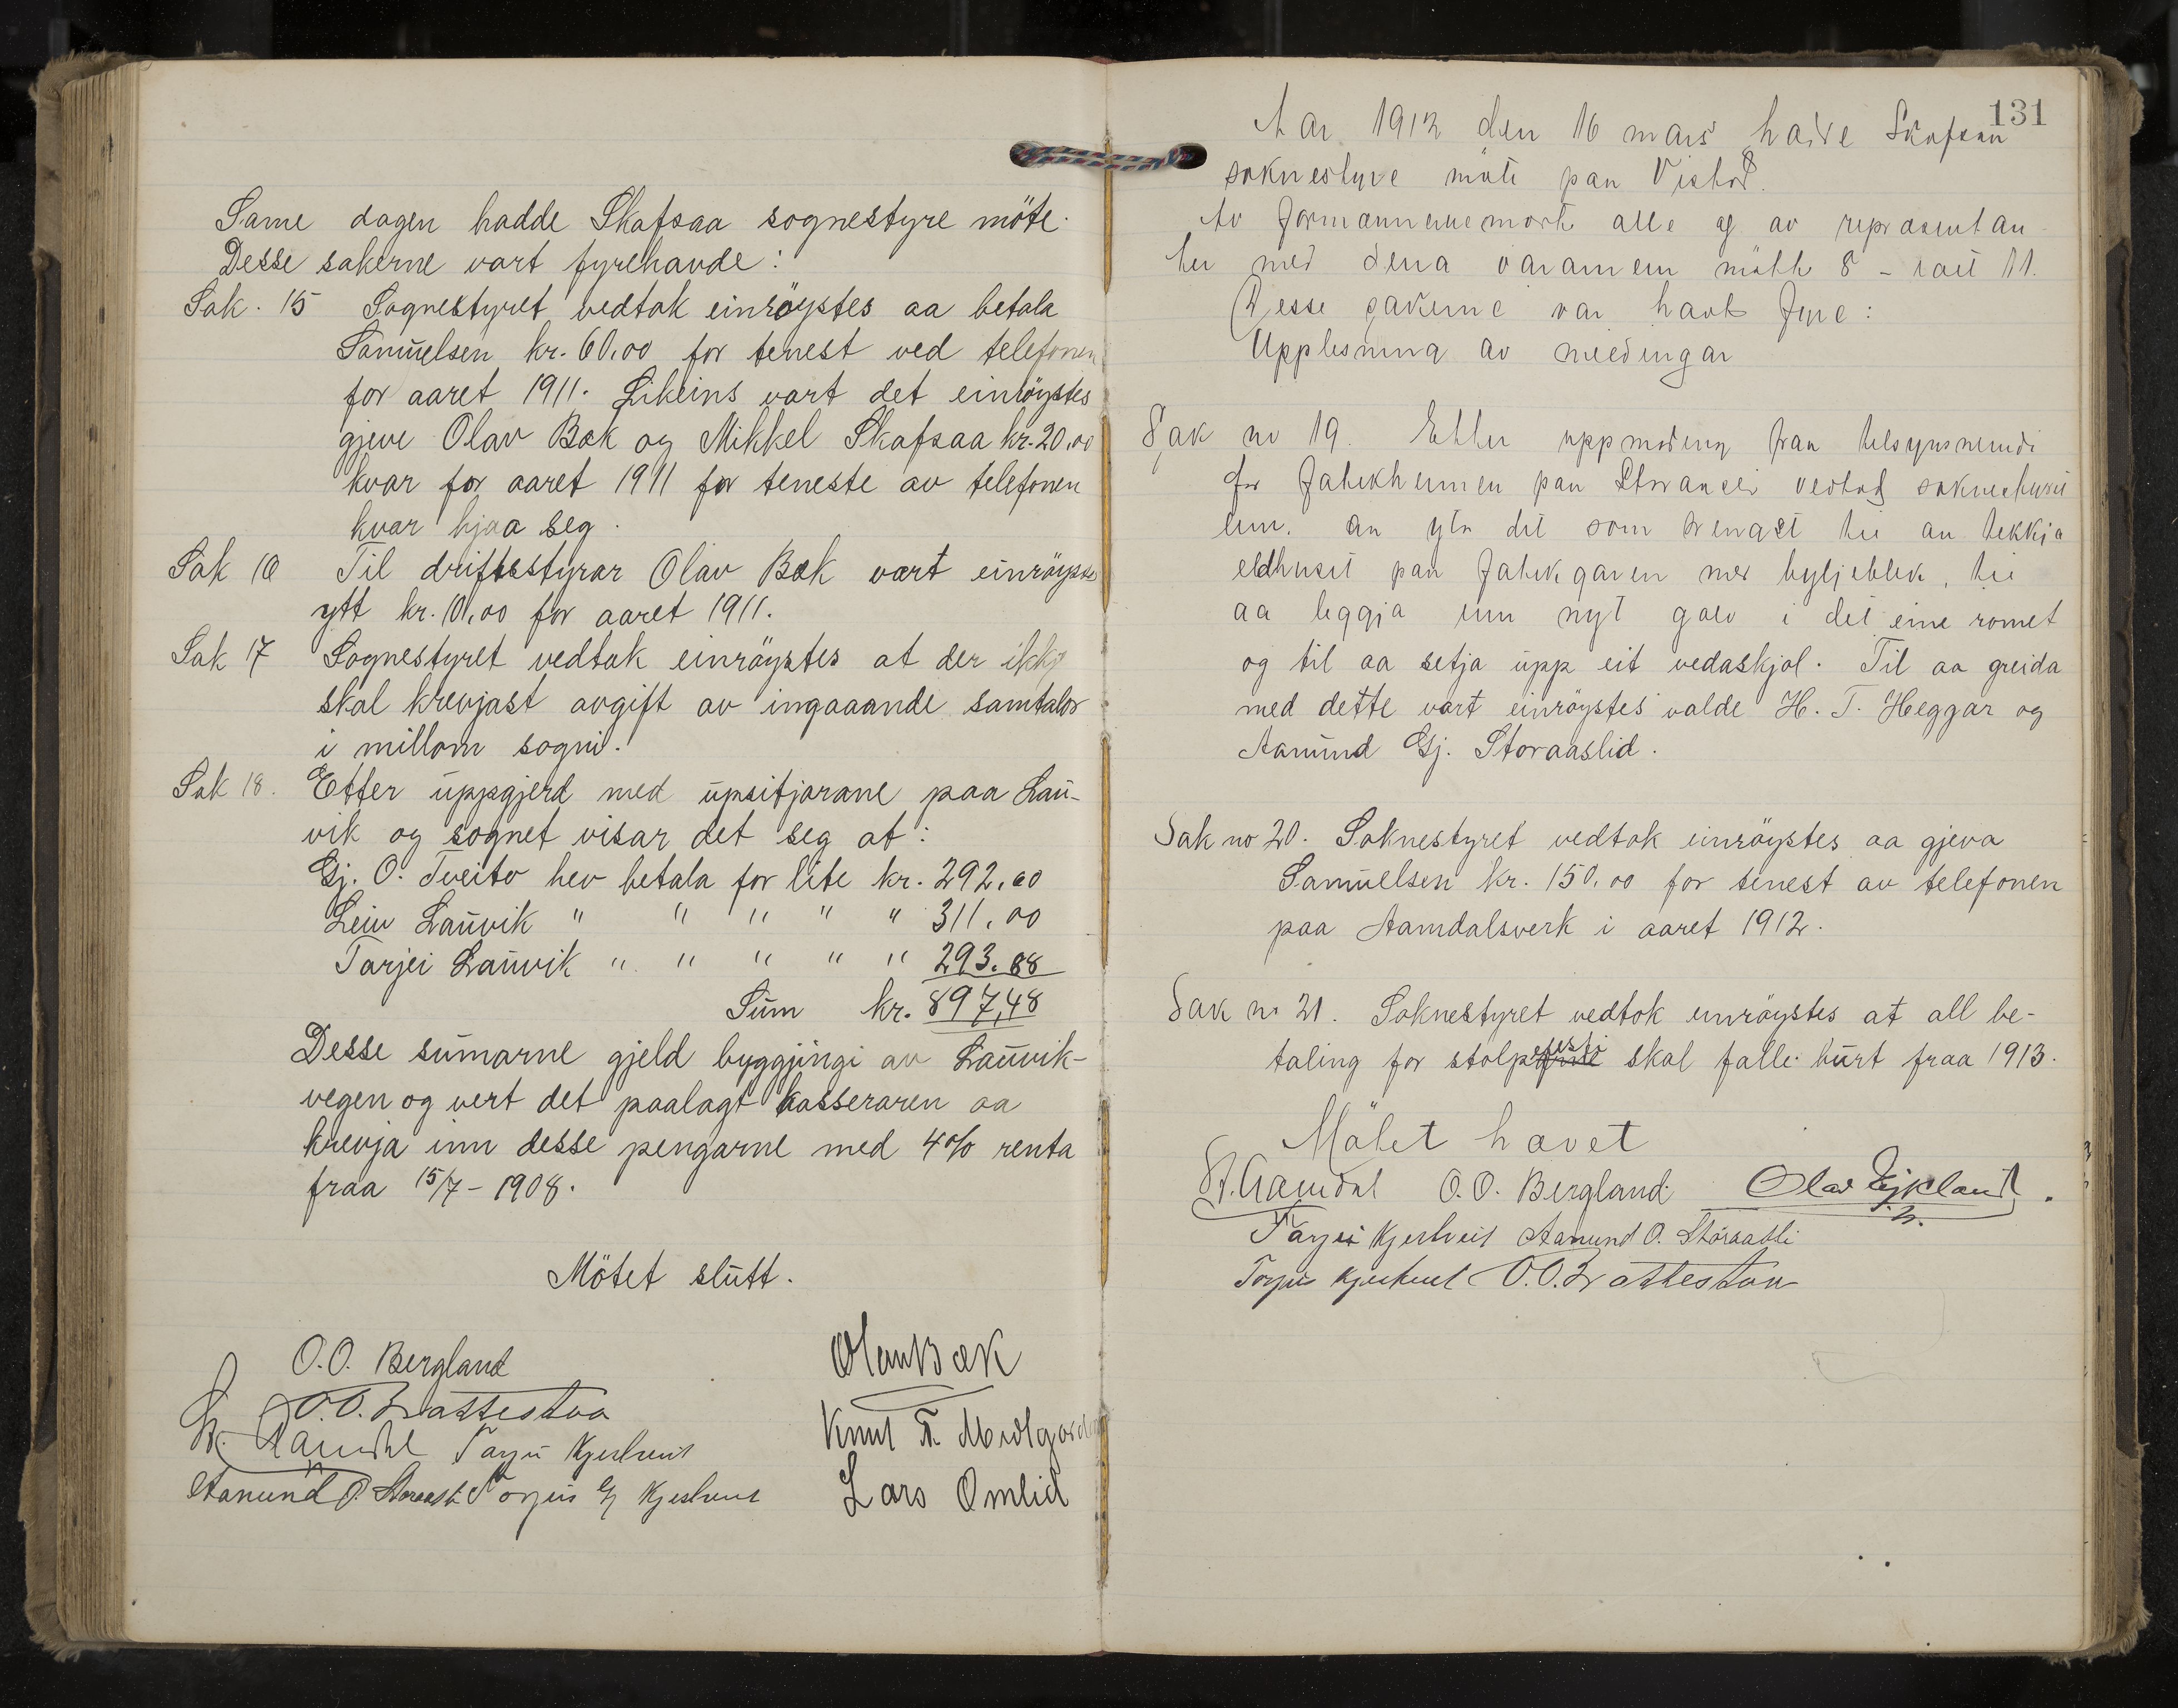 Same dagen hadde Skafsaa sognestyre möte.
Desse sakerne vart fyrehavde:
Sak. 15 Sognestyret vedtok einröystes aa betala
Samuelsen kr. 60,00 for tenest ved telefonen
for aaret 1911. Likeins vart det einröystes
gjeve Olav Bæk og Mikkel Skafsaa kr. 20,00
kvar for aaret 1911 for teneste av telefonen
kvar hjaa seg.
Sak 16 Til driftsstyrar Olav Bæk vart einröystes
ytt kr. 10,00 for aaret 1911.
Sak 17 Sognestyret vedtok einröystes at der ikkje
skal krevjast avgift av ingaaande samtalar
i millom sogni.
Sak 18. Etter uppgjerd med upsitjarane paa Lau-
vik og sognet visar det seg at:
Gj. O. Tveito hev betala for lite kr. 292,60
Leiv Lauvik " " " " " 311,00
Tarjei Lauvik " " " " " 293.88
Sum kr. 897,48
Desse sumarne gjeld byggjingi av Lauvik-
vegen og vert det paalagt kasseraren aa
krevja inn desse pengarne med 4% renta
fraa 15/7 - 1908.
Mötet slutt.
O.O. Bergland
Olav Bæk
O.O. Brattestaa
Knut T. Midtgarden
Aamdal Tarjei Kjerhuus
Aanund O. Storaasli
Lars Omlid
131
Aar 1912 den 16 mars hadde Skafsaa
soknestyre möte paa Vistad.
Av formennerne mötte alle og av representan-
ter med varamenn mötte 8 - i alt 11.
Desse sakerne var havt fyre:
Upplesning av meldingar
Sak no 19. Etter uppmoding fraa tilsynsnemdi
for fatikheimen paa vedtok soknestyret
einr. aa yta det som trengst til aa tekkja
eldhuset paa fatikgarden med bylgjeblik, til
aa leggja inn nyt golv i det eine romet
og til aa setja upp eit vedaskjol. Til aa greida
med dette vart einröystes valde H. T. Heggar og
Aanund Gj. Storaaslid.
Sak no 20. Soknestyret vedtok einröystes aa gjeva
Samuelsen kr. 150,00 for tenest av telefonen
paa Aamdalsverk i aaret 1912.
Sak no 21. Soknestyret vedtok einröystes at all be-
taling for stolpefeste skal falle burt fraa 1913.
Mötet hævet
Aamdal O.O. Bergland Olav
Tarjei Aanund O. Storaasli
O.O. Brattestaa